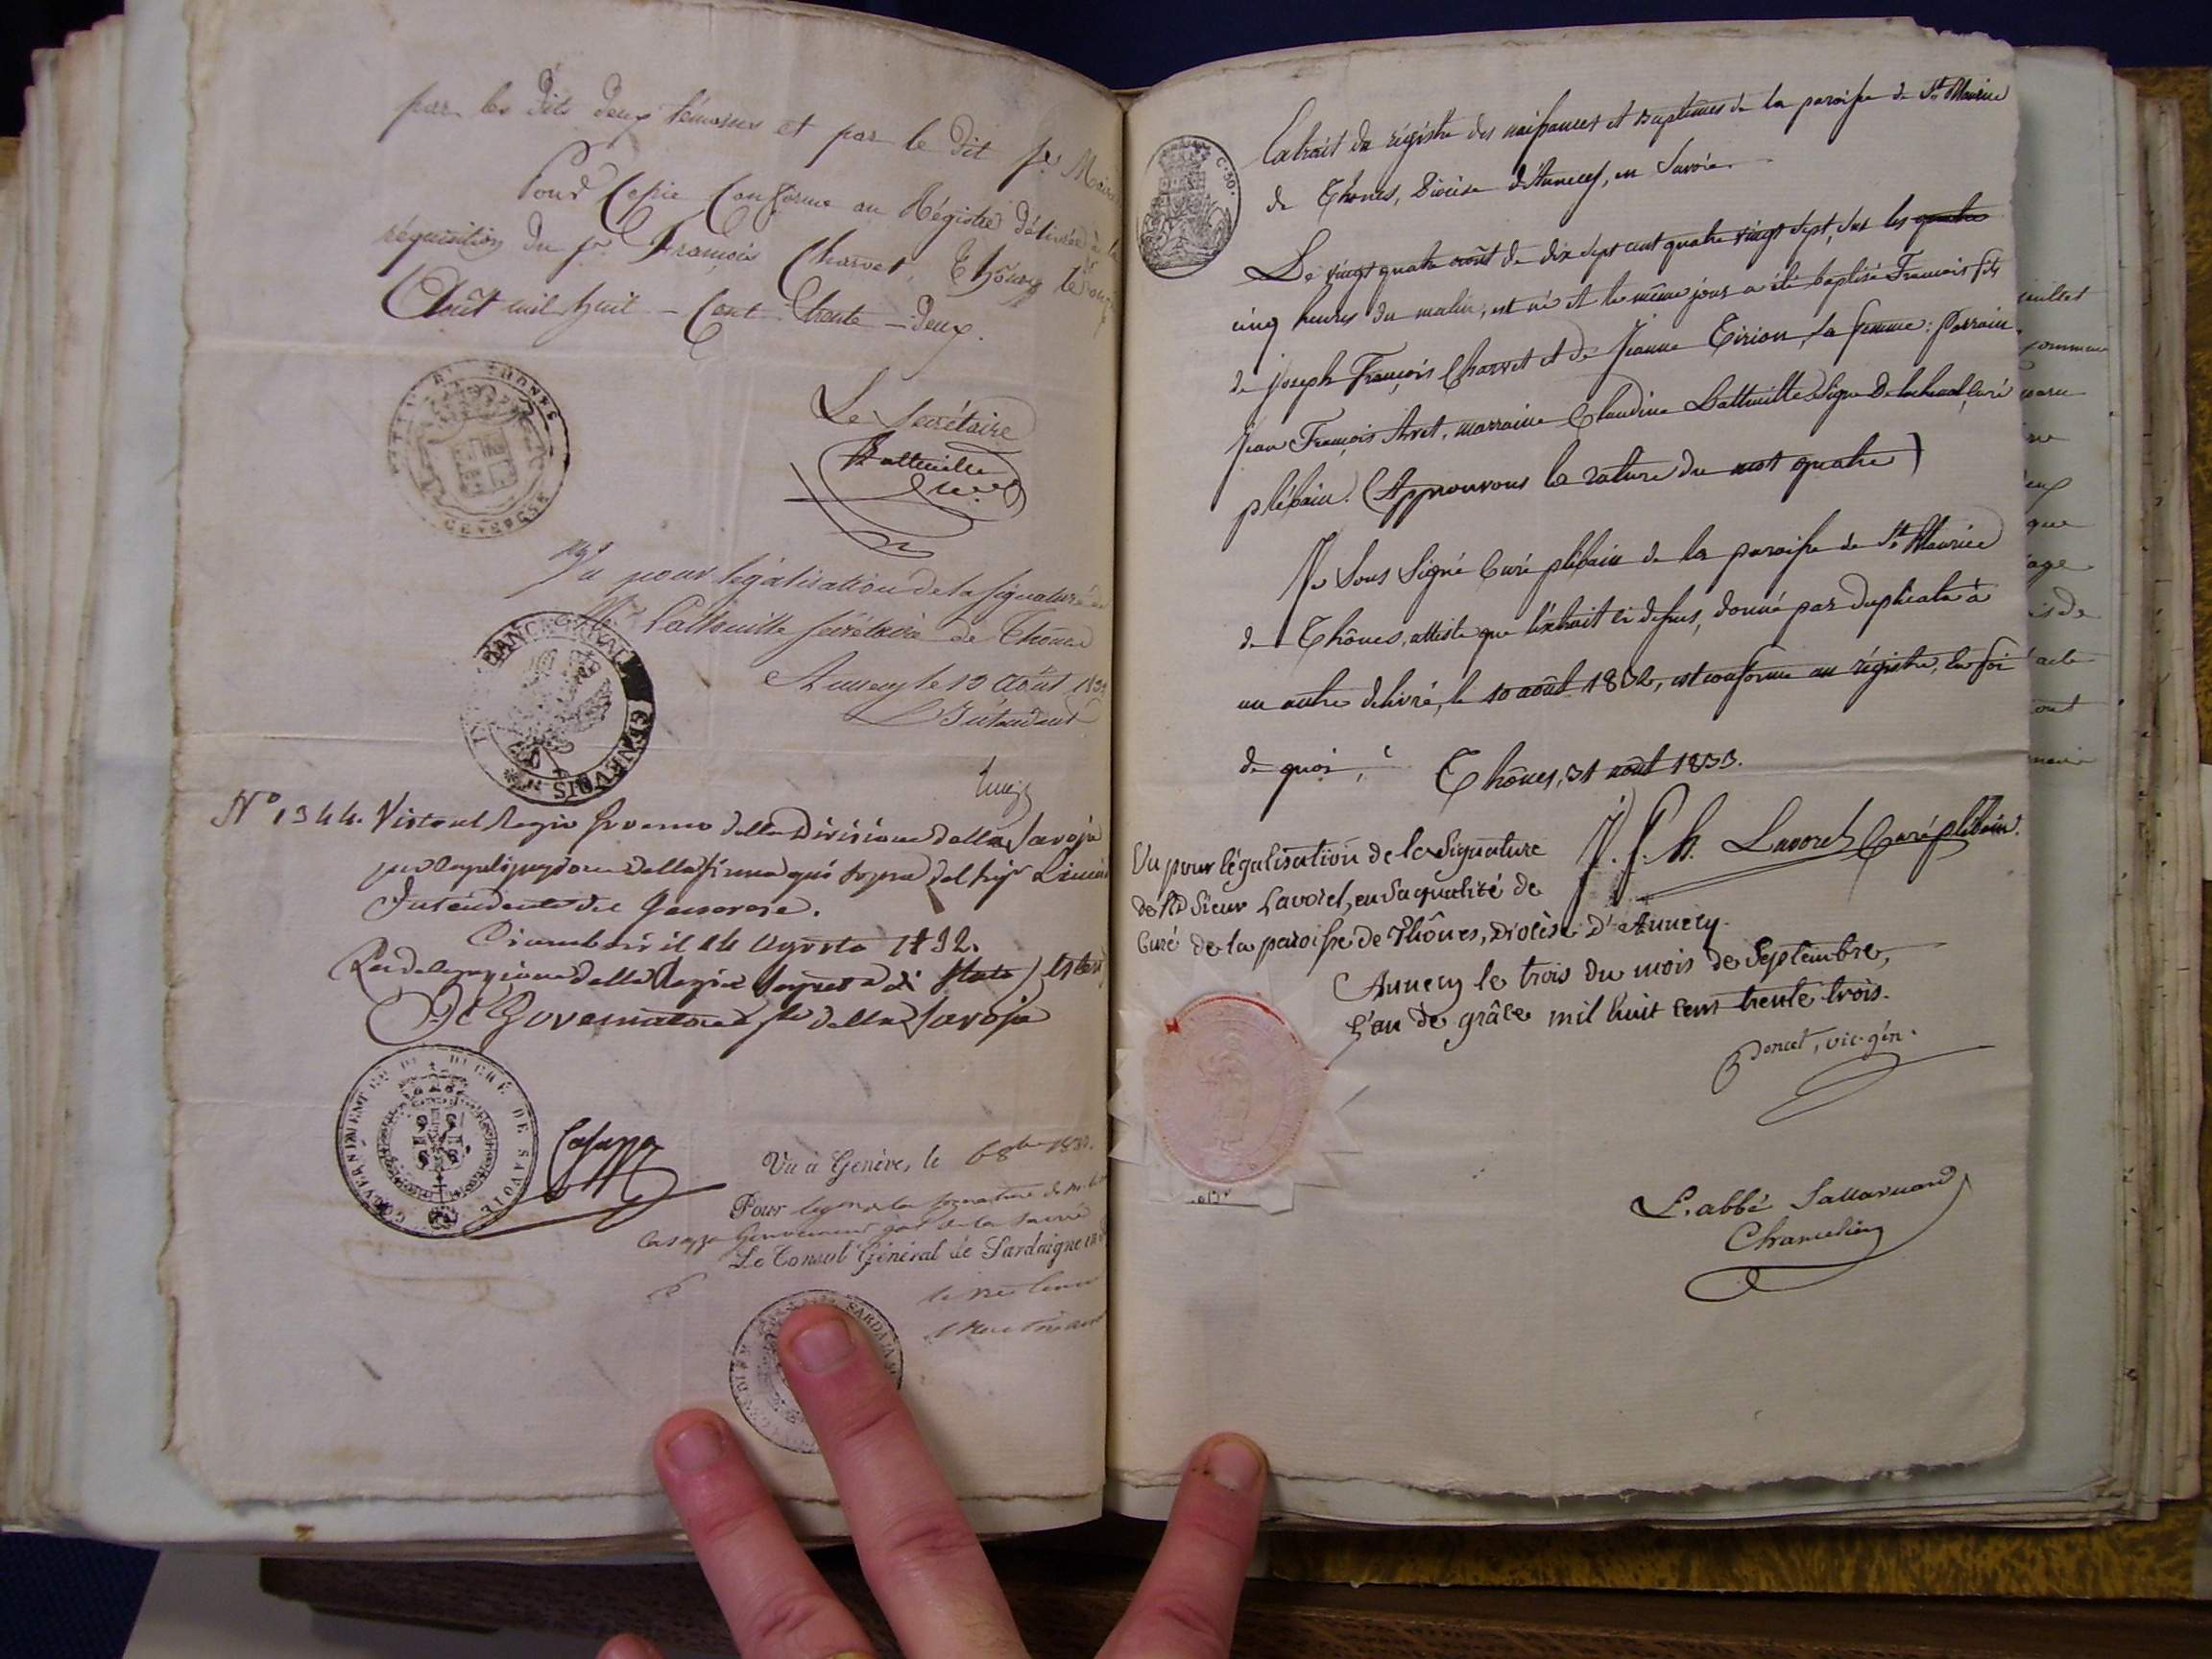 par les dits deux témoins et par le dit Sr. Maire
Pour Copie Conforme au Régistre délivrée à la
réquisition du Sr. François Charvet, Thônes le
Août mil huit - Cent - trente - deux.
Le Secrétaire
Batteuille
Vu pour légalisation de la signature
Secrétaire de Thônes
Annecy le 13 Août
L'Intendant
GENEVOIS
N° 1344. Visto nel Regio Governo della Divisione della Savoja
della firma qui sopra del Sigr
Intendente del Genevese.
Ciamberi il 14 Agosto 1832.
Per delegazione della Regia Segreta di Stato
Il Governatore della Savoja
GOUVERNEMENT DU DUCHÉ DE SAVOIE
Casazza
Vu à Genève, le 6 8bre
Pour legon de la signature de
Casazza Gouverneur de la Savoie
Le Consul Général de Sardaigne en
C. 50.
Extrait du régistre des naissances et baptêmes de la paroisse de St. Maurice
de Thônes, Diocèse d'Annecy, en Savoie.
Le vingt quatre août de dix sept cent quatre vingt sept, sur les quatre
cinq heures du matin, est né et le même jour a été baptisé François fils
de Joseph François Charvet et de Jeanne Tirion, sa femme: Parrain
Jean François Avet, marraine Claudine Batteuille Signé Delachenal, curé
plébain. (Approuvons la rature du mot quatre)
Je Sous Signé Curé plébain de la paroisse de St. Maurice
de Thônes, atteste que l'extrait ci dessus, donné par duplicata à
un autre délivré, le 10 août 1832, est conforme au régistre, en foi
de quoi, Thônes, 31 août 1833.
J. Ph. Lavorel Curé plébain.
Vu pour légalisation de la Signature
de Rd Sieur Lavorel, en sa qualité de
Curé de la paroisse de Thônes, Diocèse d'Annecy.
Annecy le trois du mois de Septembre,
L'an de grâce mil huit cent trente trois.
Poncet, vic. gén.
L'abbé Sallavuard
Chancelier